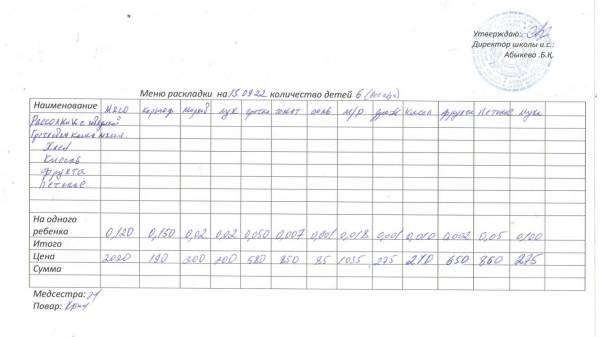 Утверждаю:
Директор школы и.с.:
Абыкева .Б.Қ.
Меню раскладки на 15.09.22 количество детей 6
Наименование мясо картоф морков лук гречка томат соль м/р кисел фрукты печенье мука
Рассольник с
Гречневая каша
Хлеб
Кисель
фрукта
печенье
На одного
ребенка 0,120 0,150 0,02 0,02 0,050 0,007 0,001 0,018 0,001 0,010 0.002 0,05 0,100
Итого
Цена 2020 190 200 200 580 850 85 1035 275 270 650 860 275
Сумма
Медсестра:
Повар: